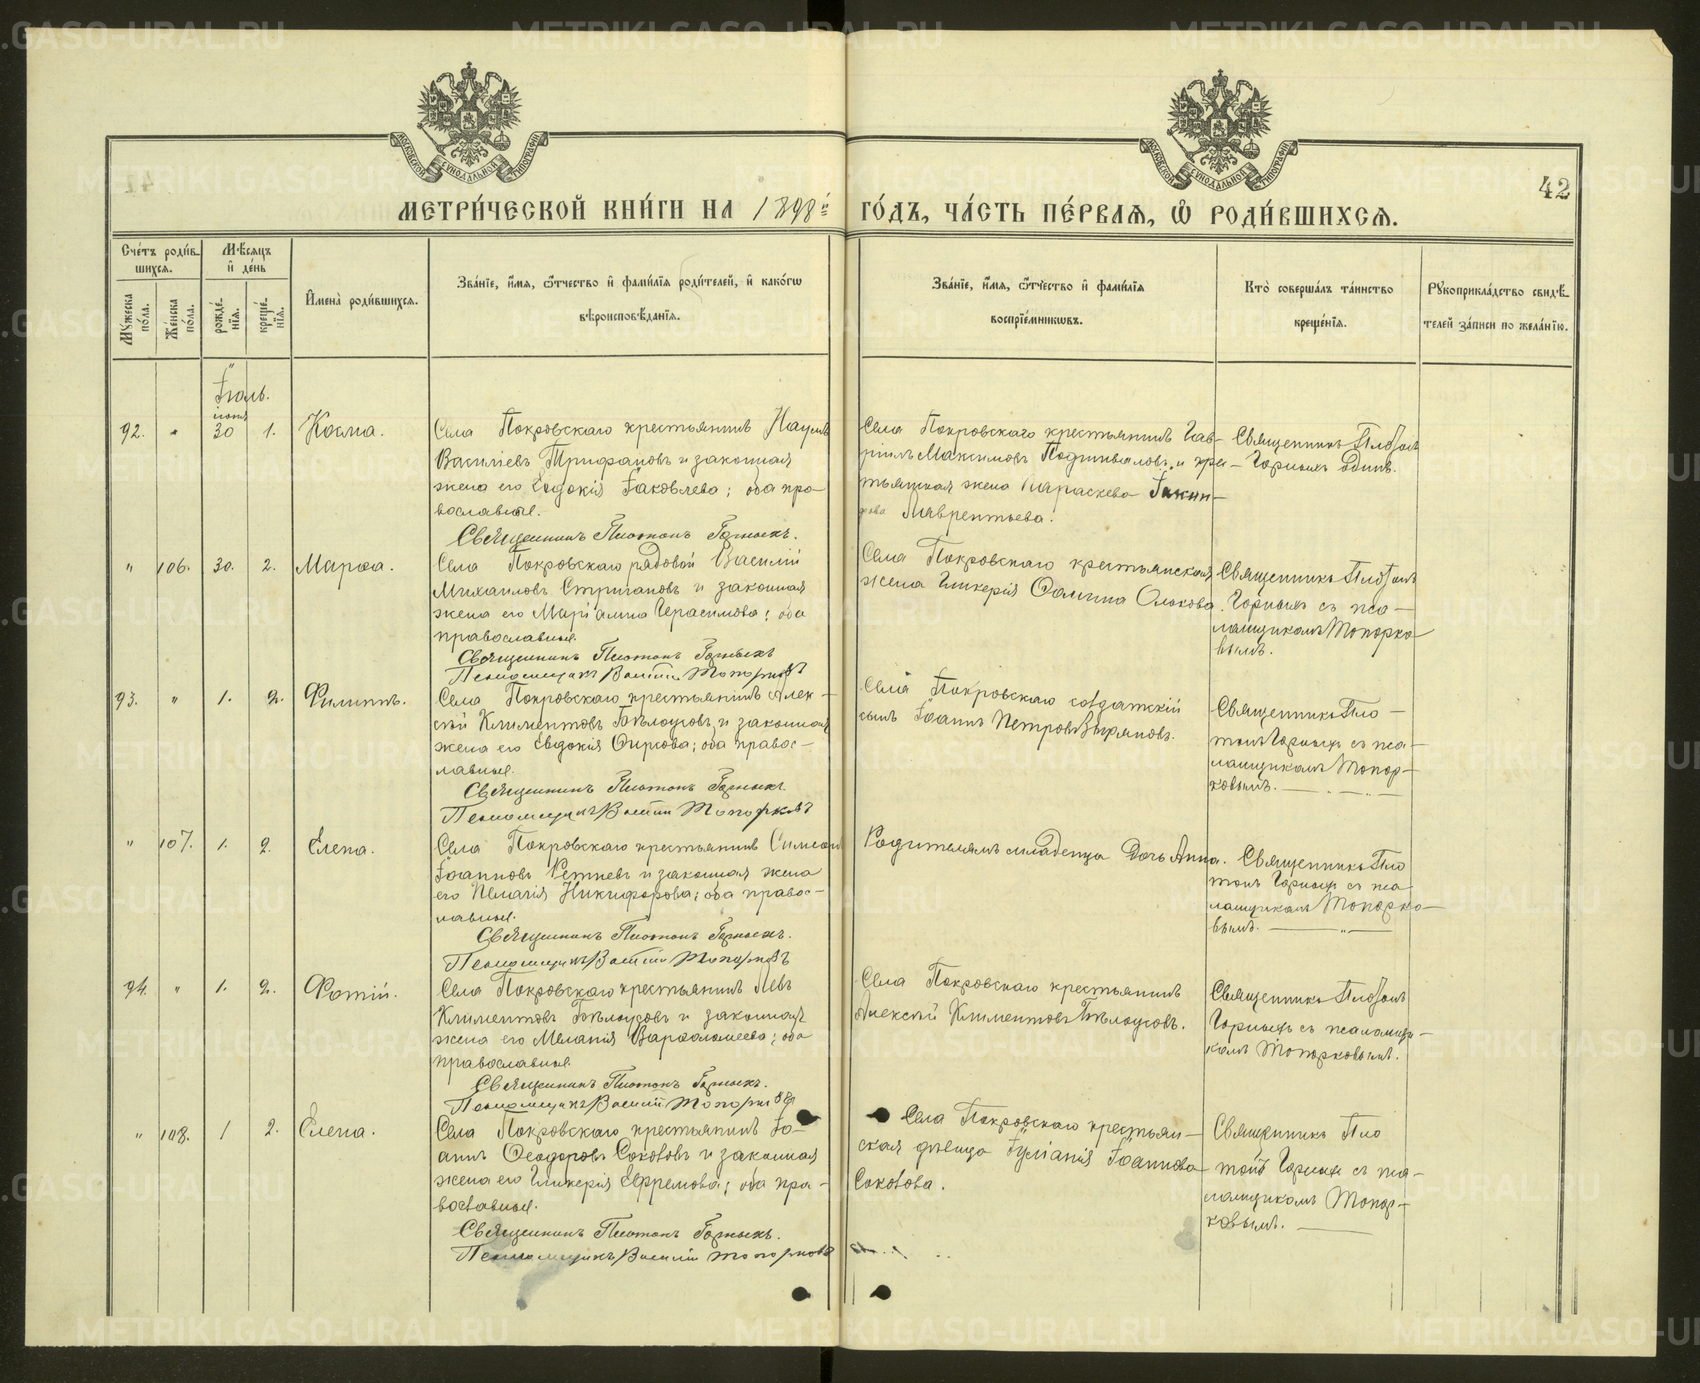 МЕТРИ́ЧЕСКОЙ КНИ́ГИ НА 1898й
ГО́ДЪ, ЧА́СТЬ ПЕ́РВАѦ, Ѿ РОДИ́ВШИХСѦ.
42
Сче́тъ роди́в-
шихсѧ.
Мѣ́сѧцъ
и҆ де́нь
Мꙋ́жеска по́ла.
Же́нска по́ла.
рожде́нїѧ.
креще́нїѧ.
И҆мена̀ роди́вшихсѧ.
Зва́нїе, и҆́мѧ, ѻ҆́тчество и҆ фами́лїѧ роди́телей, и҆ како́гѡ
вѣроисповѣ́данїѧ.
Зва́нїе, и҆́мѧ, ѻ҆́тчество и҆ фами́лїѧ
воспрїе́мникѡвъ.
Кто̀ соверша́лъ та́инство
креще́нїѧ.
Рꙋкоприкла́дство свидѣ́-
телей за́писи по жела́нїю.
Іюль.
іюня
92. " 30 1. Косма.
Села Покровскаго крестьянинъ Наумъ
Василіевъ Трифановъ и законная
жена его Евдокія Іаковлева; оба пра-
вославные.
Священникъ Платонъ Горныхъ.
Села Покровскаго крестьянинъ Гав-
ріилъ Максимовъ Подшиваловъ и кре-
тьянская жена Параскева
Лаврентьева.
Священникъ Платонъ
Горныхъ одинъ.
" 106. 30. 2. Марѳа.
Села Покровскаго рядовой Василій
Михаиловъ Стригановъ и законная
жена его Маріамна Герасимова; оба
православные.
Священникъ Платонъ Горныхъ
Псаломщикъ Василій Топорковъ
Села Покровскаго крестьянская
жена Гликерія Ѳомина
Священникъ Платонъ
Горныхъ съ пса-
ломщикомъ Топорко
вымъ.
93. " 1. 2. Филиппъ.
Села Покровскаго крестьянинъ Алек-
сѣй Климентовъ Бѣлоусовъ и законная
жена его Евдокія Фирсова; оба правос-
лавные.
Священникъ Платонъ Горныхъ.
Псаломщикъ Василій Топорковъ
Села Покровскаго солдатскій
сынъ Іоаннъ Петровъ Зыряновъ.
Священникъ Пла-
тонъ Горныхъ съ пса-
ломщикомъ Топор-
ковымъ.
" 107. 1. 2. Елена.
Села Покровскаго крестьянинъ Симеонъ
Іоанновъ Ретневъ и законная жена
его Пелагія Никифорова; оба правос-
лавные.
Священникъ Платонъ Горныхъ.
Псаломщикъ Василій Топорковъ
Родителямъ младенца дочь Анна.
Священникъ Пла
тонъ Горныхъ съ пса-
ломщикомъ Топорко-
вымъ.
94. " 1. 2. Фотій.
Села Покровскаго крестьянинъ Левъ
Климентовъ Бѣлоусовъ и законная
жена его Меланія Варѳоломеева; оба
православные.
Священникъ Платонъ Горныхъ.
Псаломщикъ Василій Топорковъ
Села Покровскаго крестьянинъ
Алексѣй Климентовъ Бѣлоусовъ.
Священникъ Платонъ
Горныхъ съ псаломщи-
комъ Топорковымъ.
" 108. 1 2. Елена.
Села Покровскаго крестьянинъ Іо-
аннъ Ѳеодоровъ Соколовъ и законная
жена его Гликерія Ефремова; оба пра-
вославные.
Священникъ Платонъ Горныхъ.
Псаломщикъ Василій Топорковъ
Села Покровскаго крестьян-
ская дѣвица Іуліанія Іоаннова
Соколова.
Священникъ Пла
тонъ Горныхъ съ пса-
ломщикомъ Топор-
ковымъ.
METRIKI.GASO-URAL.RU